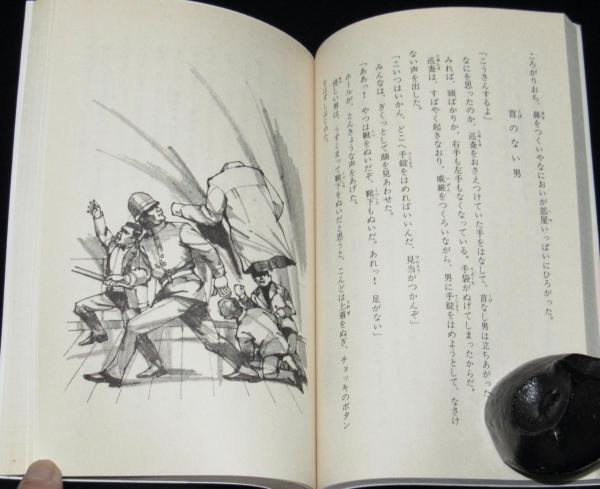 ころがりおち、鼻をつくいやなにおいが部屋いっぱいにひろがった。
首のない男
「こうさんするよ」
なにを思ったのか、巡査をおさえつけていた手をはなして、首なし男は立ちあがった
みれば、頭ばかりか、右手も左手もなくなっている。手袋がぬげてしまったからだ。
巡査は、すばやく起きなおり、威厳をつくろいながら、男に手錠をはめようとして、なさけ
ない声を出した。
「こいつはいかん、どこへ手錠をはめればいいんだ、見当がつかんぞ」
みんなは、ぎくっとして顔を見あわせた。
「ああっ！　やつは靴をぬいだぞ、靴下もぬいだ。あれっ！　足がない」
ホールが、とんきょうな声をあげた。
怪しい男は、うずくまって靴下をぬいだと思うと、こんどは上着をぬぎ、チョッキのボタン
をはずしはじめた。